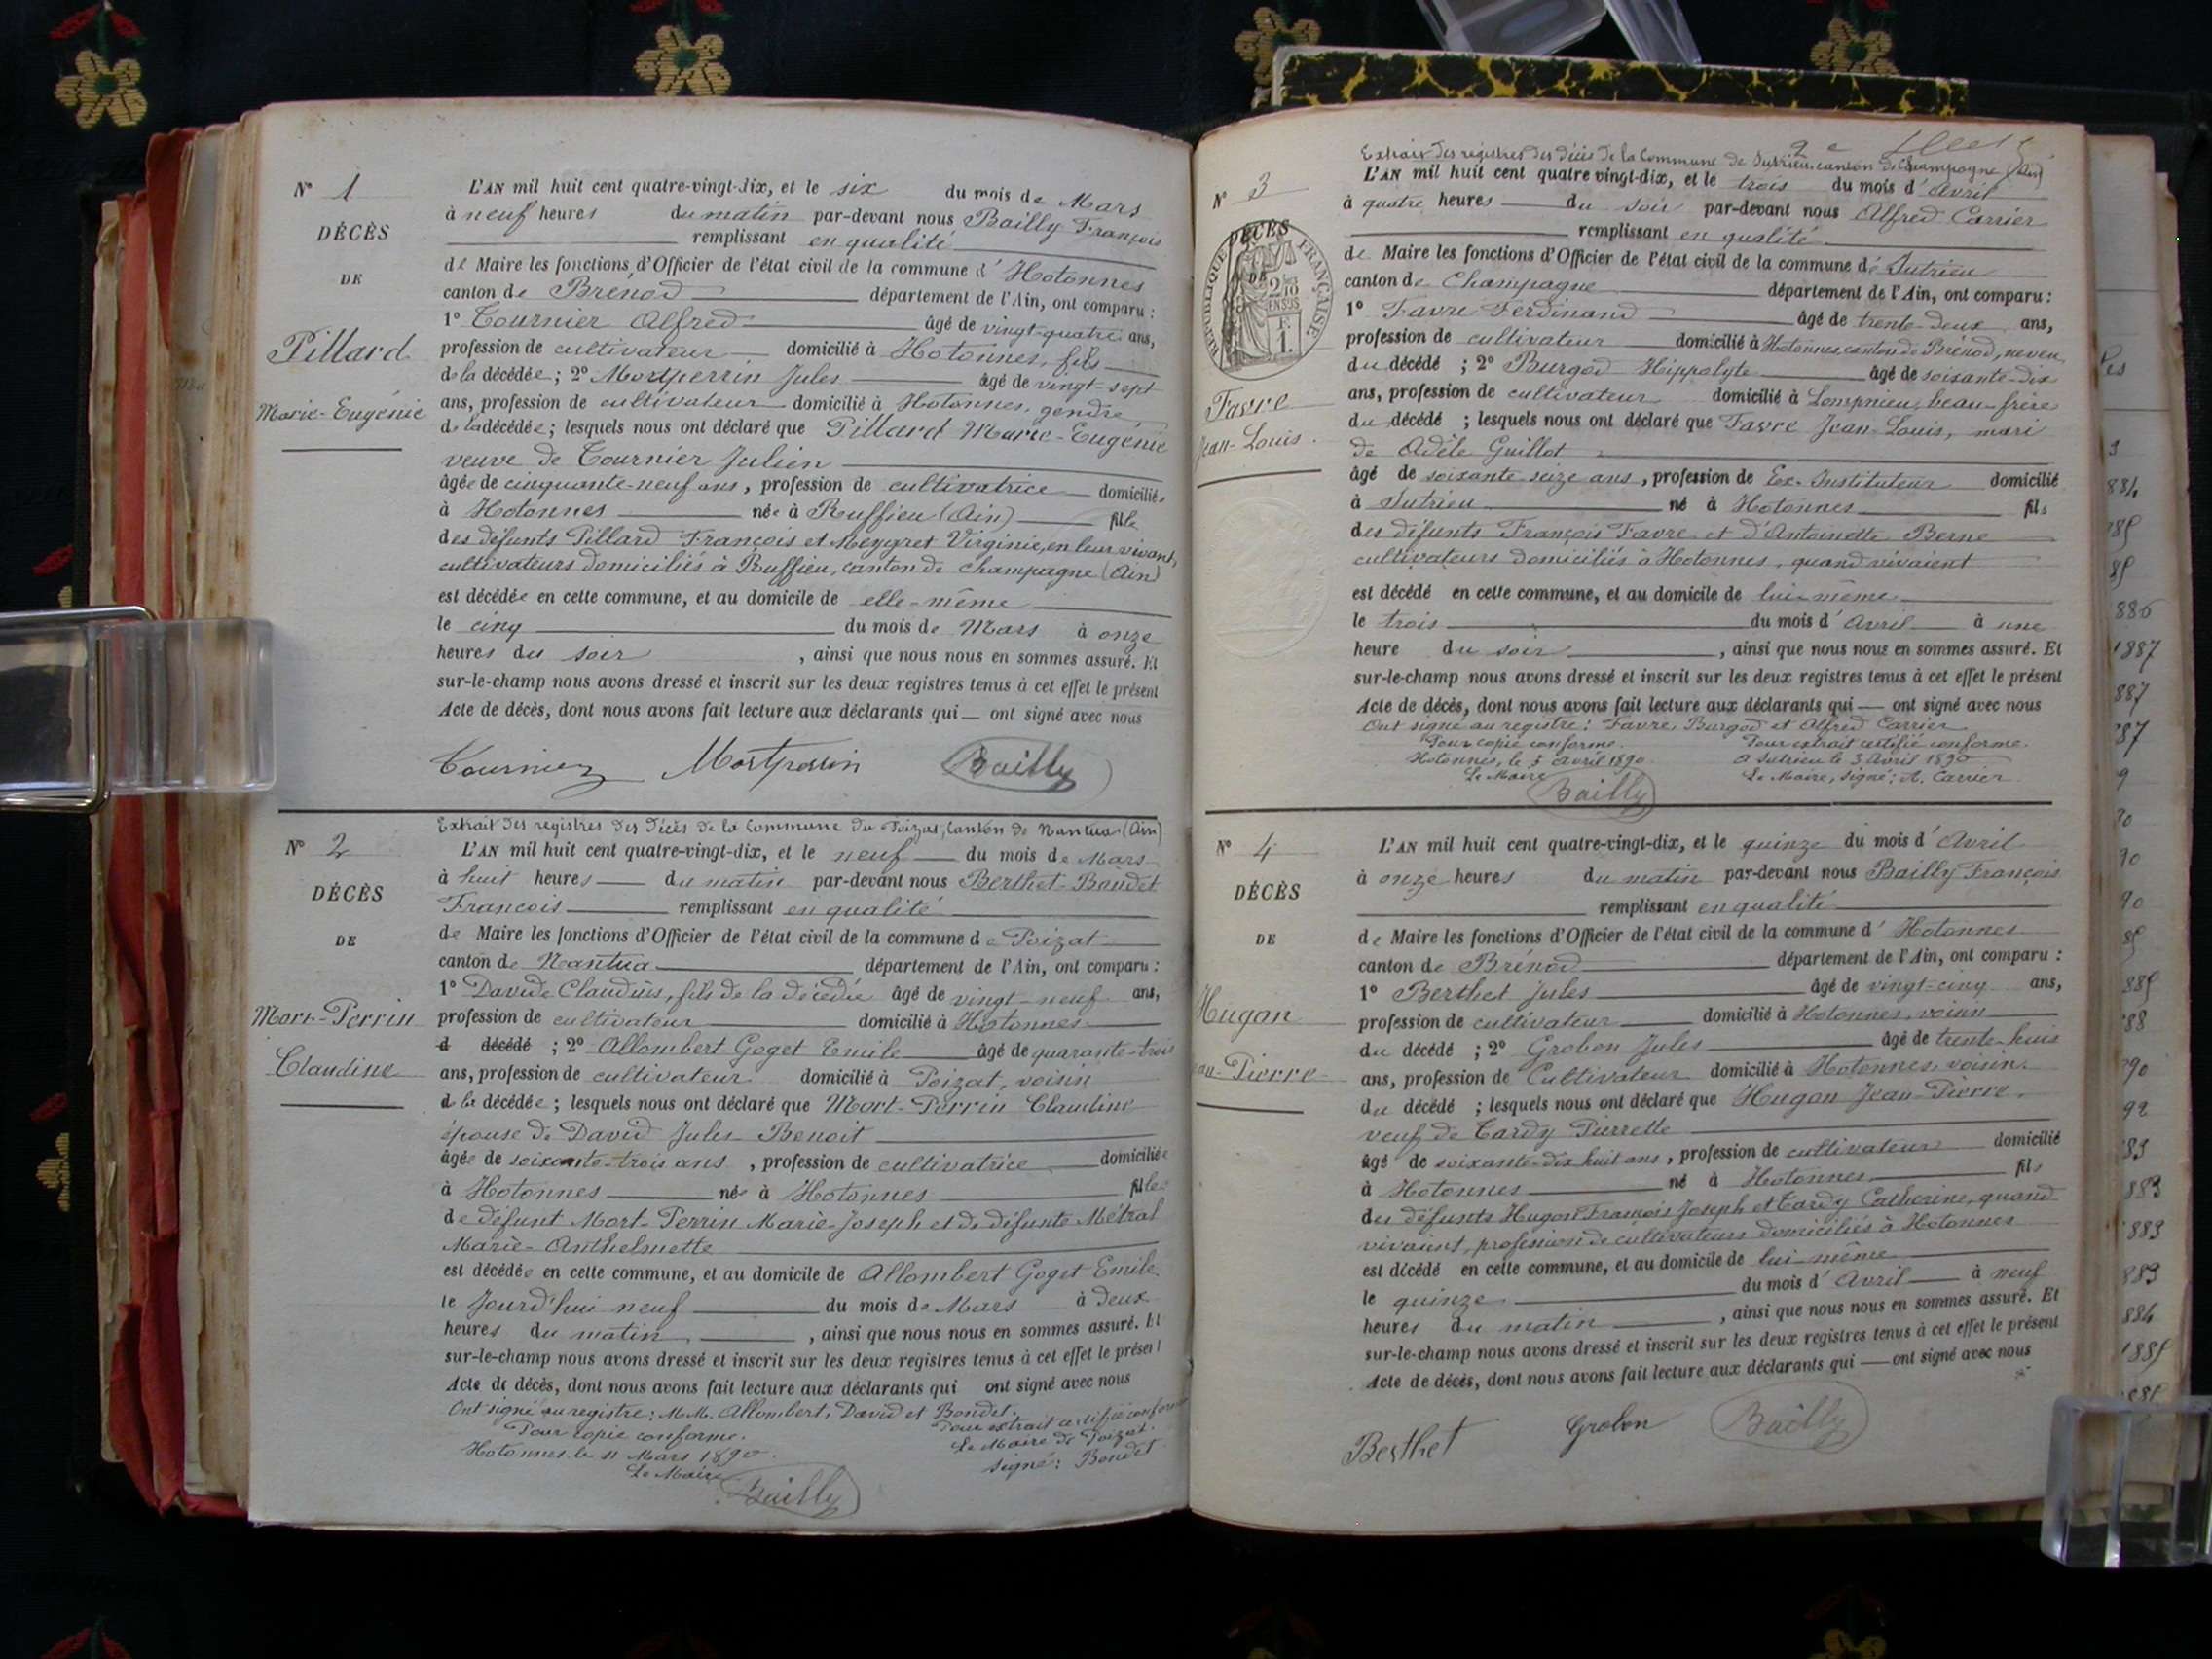 N° 1
DÉCÈS
DE
Pillard
Marie-Eugénie
L'AN mil huit cent quatre-vingt-dix, et le six du mois de Mars
à neuf heures du matin par-devant nous Bailly François
remplissant en qualité
de Maire les fonctions d'Officier de l'état civil de la commune d'Hotonnes
canton de Brenod département de l'Ain, ont comparu :
1° Tournier Alfred âgé de vingt-quatre ans,
profession de cultivateur domicilié à Hotonnes, fils
de la décédée ; 2° Mortperrin Jules âgé de vingt-sept
ans, profession de cultivateur domicilié à Hotonnes, gendre
de la décédée ; lesquels nous ont déclaré que Pillard Marie-Eugénie
veuve de Tournier Julien
âgée de cinquante-neuf ans, profession de cultivatrice domiciliée
à Hotonnes née à Ruffieu (Ain) fille
des défunts Pillard François et Meygret Virginie, en leur vivant,
cultivateurs domiciliés à Ruffieu, canton de Champagne (Ain)
est décédée en cette commune, et au domicile de elle-même
le cinq du mois de Mars à onze
heures du soir , ainsi que nous nous en sommes assuré. Et
sur-le-champ nous avons dressé et inscrit sur les deux registres tenus à cet effet le présent
Acte de décès, dont nous avons fait lecture aux déclarants qui — ont signé avec nous
Tournier Mortperrin Bailly
N° 2
DÉCÈS
DE
Mort-Perrin
Claudine
Extrait des registres des décès de la commune du Poizat, canton de Nantua (Ain)
L'AN mil huit cent quatre-vingt-dix, et le neuf du mois de Mars
à huit heures du matin par-devant nous Berthet-Bondet
François remplissant en qualité
de Maire les fonctions d'Officier de l'état civil de la commune de Poizat
canton de Nantua département de l'Ain, ont comparu :
1° David Claudius, fils de la décédée âgé de vingt-neuf ans,
profession de cultivateur domicilié à Hotonnes
d décédé ; 2° Allombert-Goget Emile âgé de quarante-trois
ans, profession de cultivateur domicilié à Poizat, voisin
de la décédée ; lesquels nous ont déclaré que Mort-Perrin Claudine
épouse de David Jules-Benoit
âgée de soixante-trois ans , profession de cultivatrice domiciliée
à Hotonnes née à Hotonnes fille
de défunt Mort-Perrin Marie-Joseph et de défunte Métral
Marie-Anthelmette
est décédée en cette commune, et au domicile de Allombert Goget Emile
le Jourd'hui neuf du mois de Mars à deux
heures du matin , ainsi que nous nous en sommes assuré. Et
sur-le-champ nous avons dressé et inscrit sur les deux registres tenus à cet effet le présent
Acte de décès, dont nous avons fait lecture aux déclarants qui ont signé avec nous
Ont signé au registre : M.M. Allombert, David et Bondet.
Pour copie conforme. Pour extrait certifié conforme
Hotonnes le 11 Mars 1890. Le Maire de Poizat.
Le Maire signé : Bondet
Bailly
N° 3
DÉCÈS
DE
RÉPUBLIQUE FRANÇAISE
2/10
EN SUS
F.
1.
Favre
Jean-Louis.
Extrait des registres des décès de la Commune de Sutrieu canton de Champagne (Ain)
L'AN mil huit cent quatre-vingt-dix, et le trois du mois d'avril
à quatre heures du soir par-devant nous Alfred Carrier
remplissant en qualité
de Maire les fonctions d'Officier de l'état civil de la commune de Sutrieu
canton de Champagne département de l'Ain, ont comparu :
1° Favre Ferdinand âgé de trente-deux ans,
profession de cultivateur domicilié à Hotonnes, canton de Brénod, neveu
du décédé ; 2° Burgod Hippolyte âgé de soixante-dix
ans, profession de cultivateur domicilié à Lompnieu, beau-frère
du décédé ; lesquels nous ont déclaré que Favre Jean-Louis, mari
de Adèle Guillot
âgé de soixante-seize ans , profession de Ex-Instituteur domicilié
à Sutrieu né à Hotonnes fils
des défunts François Favre et d'Antoinette Berne
cultivateurs domiciliés à Hotonnes, quand vivaient
est décédé en cette commune, et au domicile de lui-même
le trois du mois d'avril à une
heure du soir , ainsi que nous nous en sommes assuré. Et
sur-le-champ nous avons dressé et inscrit sur les deux registres tenus à cet effet le présent
Acte de décès, dont nous avons fait lecture aux déclarants qui — ont signé avec nous
Ont signé au registre : Favre, Burgod et Alfred Carrier
Pour copie conforme. Pour extrait certifié conforme.
Hotonnes, le 5 avril 1890 A Sutrieu le 3 Avril 1890
Le Maire Le Maire, signé : A. Carrier
Bailly
N° 4
DÉCÈS
DE
Hugon
Jean-Pierre
L'AN mil huit cent quatre-vingt-dix, et le quinze du mois d'Avril
à onze heures du matin par-devant nous Bailly François
remplissant en qualité
de Maire les fonctions d'Officier de l'état civil de la commune d'Hotonnes
canton de Brénod département de l'Ain, ont comparu :
1° Berthet Jules âgé de vingt-cinq ans,
profession de cultivateur domicilié à Hotonnes, voisin
du décédé ; 2° Grobon Jules âgé de trente-huit
ans, profession de Cultivateur domicilié à Hotonnes, voisin.
du décédé ; lesquels nous ont déclaré que Hugon Jean-Pierre.
veuf de Tardy Pierrette
âgé de soixante-dix huit ans, profession de cultivateur domicilié
à Hotonnes né à Hotonnes fils
des défunts Hugon François Joseph et Tardy Catherine, quand
vivaient, profession de cultivateurs domiciliés à Hotonnes
est décédé en cette commune, et au domicile de lui-même
le quinze du mois d'Avril à neuf
heures du matin , ainsi que nous nous en sommes assuré. Et
sur-le-champ nous avons dressé et inscrit sur les deux registres tenus à cet effet le présent
Acte de décès, dont nous avons fait lecture aux déclarants qui — ont signé avec nous
Berthet Grobon Bailly